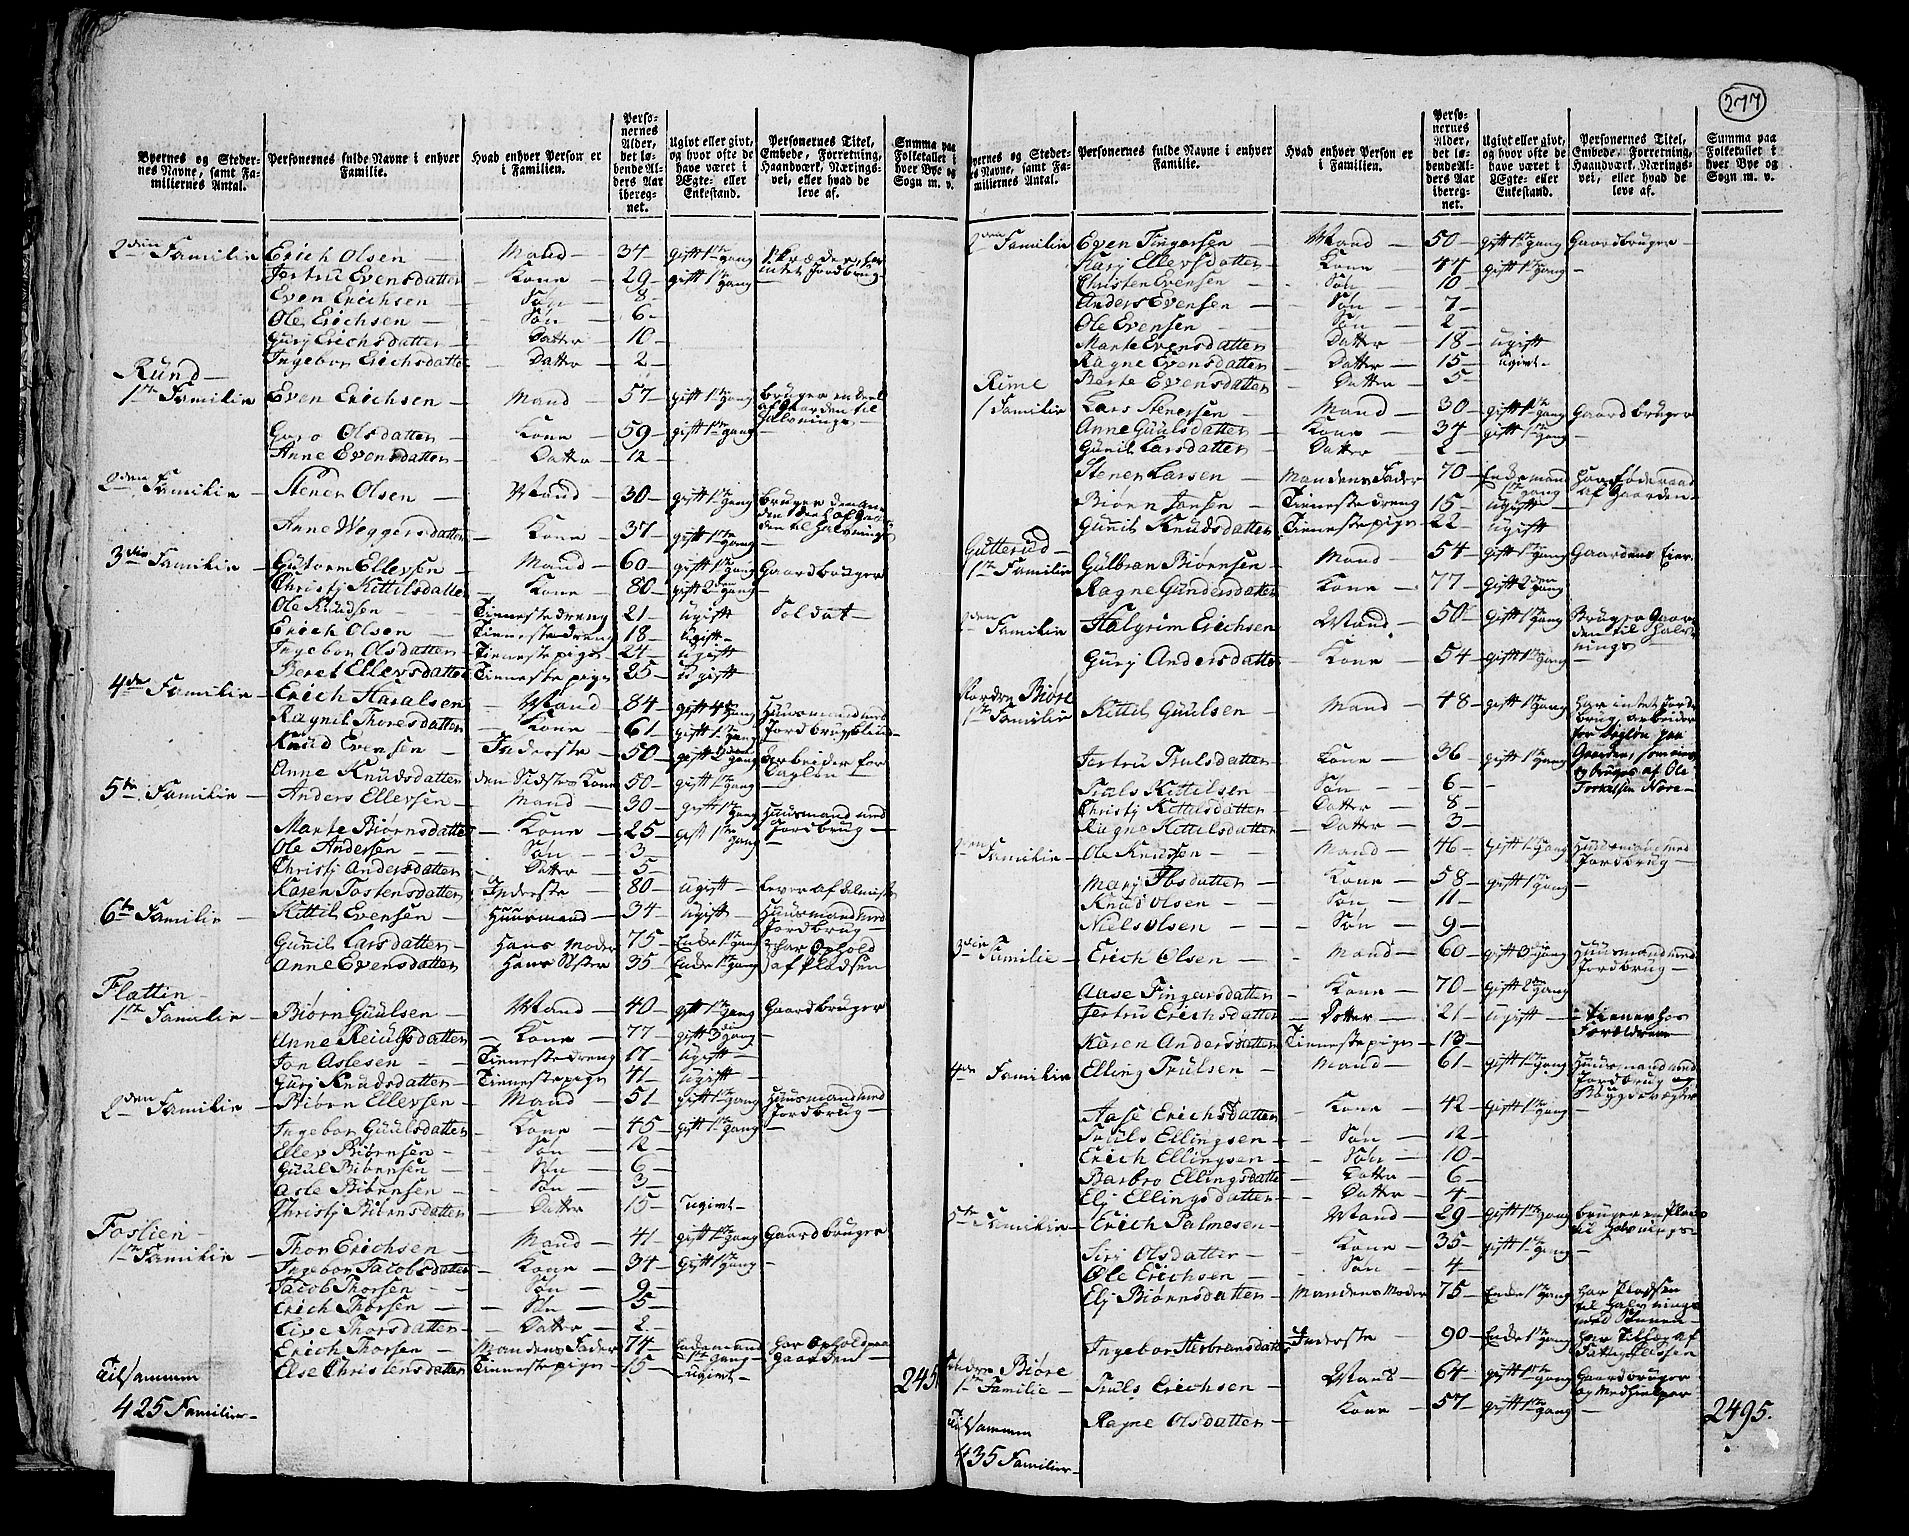 277
Byernes og Stedernes Navne, samt Familiernes Antal. | Personernes fulde Navne i enhver Familie. | Hvad enhver Person er i Familien. | Personernes Alder, det løbende Alders Aar iberegnet. | Ugivt eller givt, og hvor ofte de have været i Ægte- eller Enkestand. | Personernes Titel, Embede, Forretning, Haandværk, Næringsvei, eller hvad de leve af. | Summa paa Folketallet i hver Bye og Sogn m. v.
2den Familie Erich Olsen — Mand — 34 — gift 1ste Gang
Jertru Evensdatter — Kone — 29 — gift 1ste Gang
Even Erichsen — Søn — 8
Ole Erichsen — Søn — 6 —
Gurj Erichsdatter — Datter — 10 —
Ingebor Erichsdatter — Datter — 2 —
Rund —
1ste Familie Even Erichsen — Mand — 57 — gift 1ste Gang bruger en deel af Gaarden til Halvninge —
Goro Olsdatter — Kone — 59 — gift 1ste Gang
Anne Evensdatter — Datter — 12
2den Familie — Stener Olsen — Mand — 30 — gift 1ste Gang
Anne Weggersdatter — Kone — 37 — gift 1ste Gang
3die Familie — Gutorm Ellevsen — Mand — 60 — gift 1ste Gang Gaardbruger
Christj Kittilsdatter — Kone — 80 — gift 2den Gang
Ole Knudsen — Tienestedreng 21 — Ugift Soldat —
Erich Olsen — Tienestedreng 18 — Ugift —
Ingebor Olsdatter — Tienestepige — 24 — Ugift
Beret Ellevsdatter Tienestepige 25 — Ugift
4de Familie — Erich Haralsen — Mand — 84 — gift 4de Gang Huusmand med Jordbrug
Ragnil Thoresdatter — Kone — 61 — gift 1ste Gang
Knud Evensen — Inderste — 50 — gift 2den Gang Arbeider for Dagløn —
Anne Knudsdatter den Sidstes Kone 50 — gift 1ste Gang
5te Familie — Anders Ellevsen — Mand — 30 — gift 1ste Gang Huusmand med Jordbrug —
Marte Biørnsdatter — Kone — 25 — gift 1ste Gang
Ole Andersen — Søn — 3 —
Christj Andersdatter — Datter — 5 —
Karen Tostensdatter — Inderste — 80 — Ugift — Lever af Almisse
6te Familie — Kittil Evensen — Huusmand — 34 — Ugift Huusmand med Jordbrug —
Gunil Larsdatter — Hans Moder 75 — Enke 1ste Gang } har Ophold
Anne Evensdatter — Hans Søster 35 — Enke 1ste Gang } af Pladsen
Flattin —
1ste Familie — Biørn Guulsen — Mand — 40 — gift 1ste Gang Gaardbruger
Anne Reiulfsdatter — Kone — 77 — gift 3die Gang
Jon Aslesen — Tienestedreng 17 — Ugift —
Gurj Knudsdatter — Tienestepige 41 — Ugift —
2den Familie — Biørn Ellevsen — Mand — 51 — gift 1ste Gang Huusmand med Jordbrug —
Ingebor Guulsdatter — Kone — 45 — gift 1ste Gang
Ellev Biørnsen — Søn — 12 —
Guul Biørnsen — Søn — 6 —
Asle Biørnsen — Søn — 3 —
Christj Biørnsdatter — Datter — 15 — Ugivt —
Foslien —
1ste Familie — Thor Erichsen — Mand — 41 — gift 1ste Gang Gaardbruger
Ingebor Jacobsdatter — Kone — 34 — gift 1ste Gang
Jacob Thorsen — Søn — 9 —
Erich Thorsen — Søn — 5 —
Live Thorsdatter — Datter — 2 —
Erich Thorsen — Mandens Fader 74 — Enkemand 1ste Gang — har Ophold paa Gaarden —
Else Christensdatter — Tienestepige — 15 — Ugivt —
Tilsammen
425 Familier —
Byernes og Stedernes Navne, samt Familiernes Antal. | Personernes fulde Navne i enhver Familie. | Hvad enhver Person er i Familien. | Personernes Alder, det løbende Alders Aar iberegnet. | Ugivt eller givt, og hvor ofte de have været i Ægte- eller Enkestand. | Personernes Titel, Embede, Forretning, Haandværk, Næringsvei, eller hvad de leve af. | Summa paa Folketallet i hver Bye og Sogn m. v.
2den Familie Even Fingarsen — Mand — 50 — gift 1ste Gang Gaardbruger —
Karj Ellevsdatter — Kone — 44 — gift 1ste Gang —
Christen Evensen — Søn — 10 —
Anders Evensen — Søn — 7 —
Ole Evensen — Søn — 2 —
Marte Evensdatter — Datter — 18 — Ugift
Ragne Evensdatter — Datter — 15 — Ugivt —
Berte Evensdatter — Datter — 5 —
Rime
1 Familie — Lars Stenersen — Mand — 30 — gift 1ste Gang Gaardbruger
Anne Guulsdatter — Kone — 34 — gift 1ste Gang
Gunil Larsdatter — Datter — 2 —
Stener Larsen — Mandens Fader 70 — Enkemand 1ste Gang har Føderaad af Gaarden —
Biørn Jonsen — Tienestedreng 15 — Ugift —
Gunil Knudsdatter — Tienestepige — 22 — Ugift
Gutterud —
1ste Familie Gulbran Biørnsen — Mand — 54 — gift 1ste Gang Gaardens Eier
Ragne Gundersdatter — Kone — 77 — gift 2den Gang
2den Familie — Halgrim Erichsen — Mand — 50 — gift 1ste Gang Bruger Gaarden til Halvninge —
Gurj Andersdatter — Kone — 54 — gift 1ste Gang
Nordre Biøre
1ste Familie — Kittil Guulsen — Mand — 48 — gift 1ste Gang har intet Jordbrug, arbeider for Dagløn paa Gaarden, som eies og bruges af Ole Torkilsen Nore —
Jertru Trulsdatter — Kone — 36 — gift 1ste Gang
Truls Kittilsen — Søn — 6 —
Christj Kittilsdatter — Datter — 8 —
Ragne Kittilsdatter — Datter — 3 —
2den Familie — Ole Knudsen — Mand — 46 — gift 1ste Gang Huusmand med Jordbrug —
Marj Ibsdatter — Kone — 58 — gift 1ste Gang —
Knud Olsen — Søn — 11 —
Niels Olsen — Søn — 9 —
3die Familie — Erich Olsen — Mand — 60 — gift 3die Gang Huusmand med Jordbrug —
Aase Fingarsdatter — Kone — 70 — gift 2den Gang
Jertru Erichsdatter — Datter — 21 — Ugift — tiener hos Forældrene
Karen Andersdatter Tienestepige — 13 —
4de Familie — Elling Trulsen — Mand — 61 — gift 1ste Gang Huusmand med Jordbrug og
Aase Erichsdatter — Kone — 42 — gift 1ste Gang
Truls Ellingsen — Søn — 12 —
Erich Ellingsen — Søn — 10 —
Barbro Ellingsdatter — Datter — 6 —
Elj Ellingsdatter — Datter — 4 —
5te Familie — Erich Palmesen — Mand — 29 — gift 1ste Gang bruger en Plads til Halvninge —
Sirj Olsdatter — Kone — 35 — gift 1ste Gang
Ole Erichsen — Søn — 4 —
Elj Biørnsdatter — Mandens Moder 75 — Enke 1ste Gang har Pladsen til Halvninge med Sønnen —
Ingebor Herbransdatter Inderste — 90 — Enke 1ste Gang har Tillæg af Fattig Cassen
Biøre
1ste Familie — Truls Erichsen — Mand — 64 — gift 1ste Gang Gaardbruger og Medhielper
Ragne Olsdatter — Kone — 57 — gift 1ste Gang
Tilsammen
435 Familier —
2495.